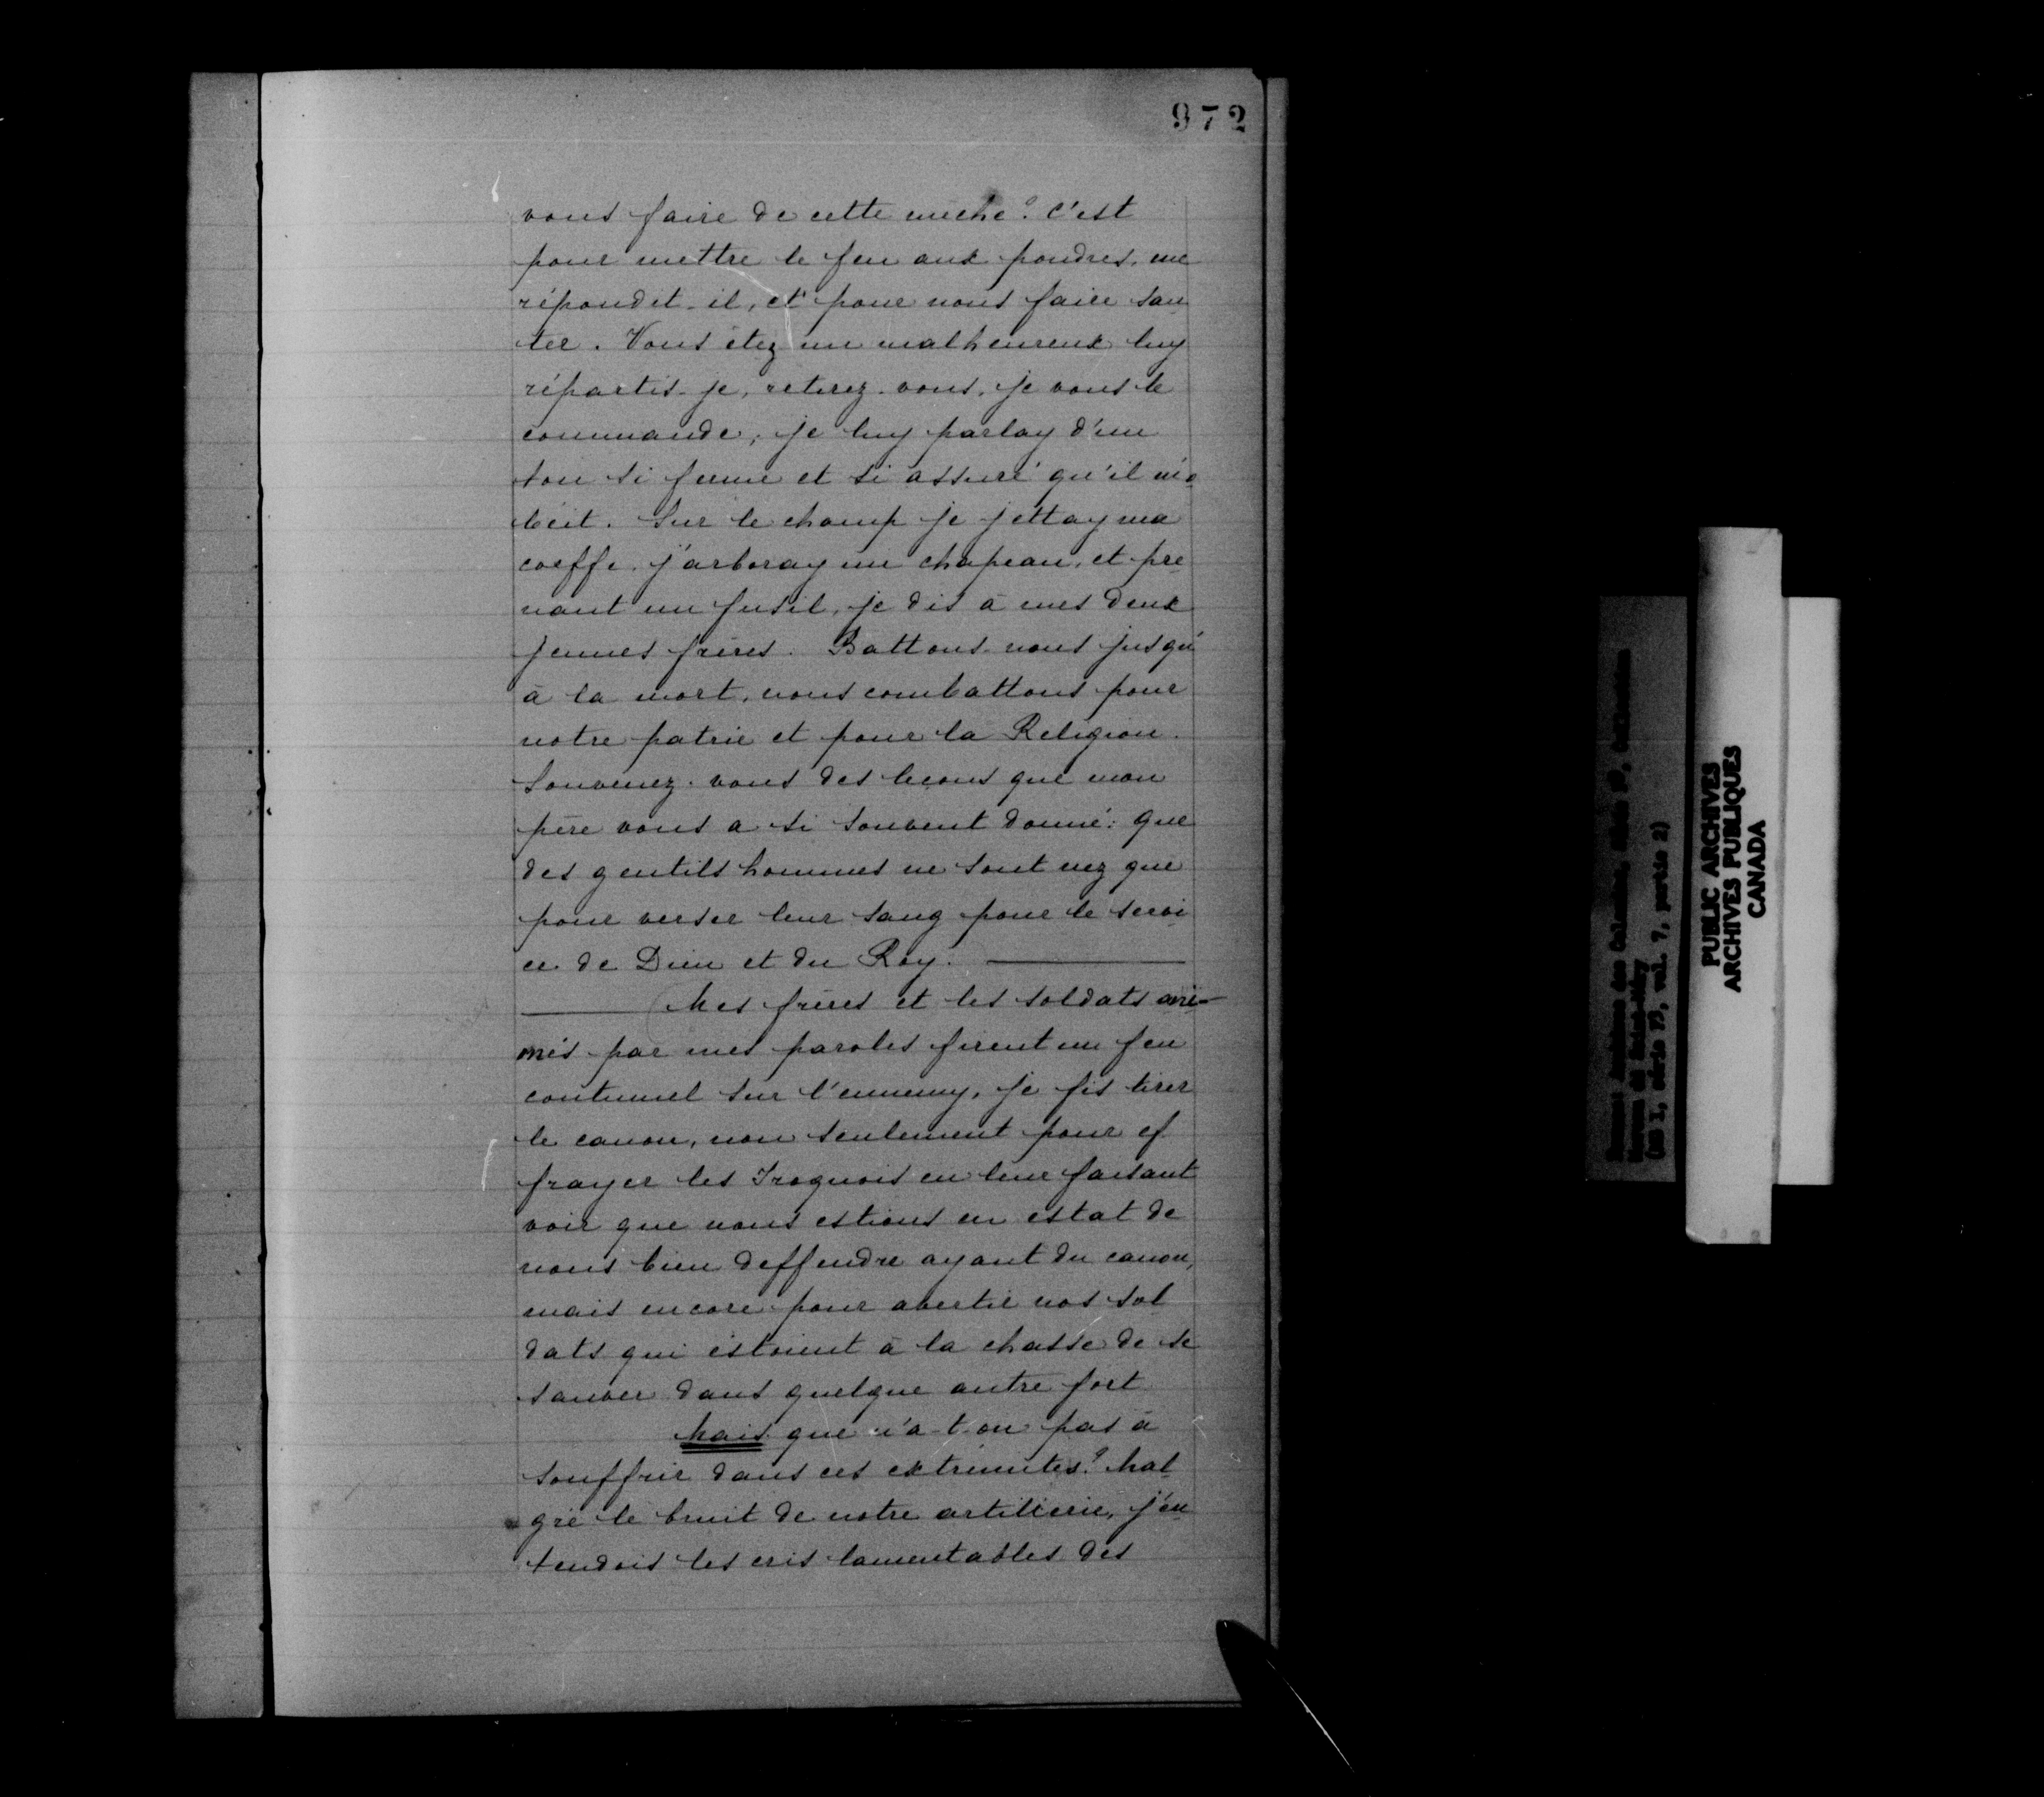 972
vous faire de cette mèche? C'est
pour mettre le feu aux poudres, me
répondit-il, et pour nous faire sau
ter. Vous étez un malheureux luy
répartis-je, retirez-vous, je vous le
commande, je luy parlay d'un
ton si ferme et si assuré qu'il m'o
béit. Sur le champ je jettay ma
coeffe, j'arboray un chapeau, et pre
nant un fusil, je dis à mes deux
jeunes frères. Battons-nous jusqu'
à la mort, nous combattons pour
notre patrie et pour la Religion.
Souvenez-vous des leçons que mon
père vous a si souvent donné: que
des gentils hommes ne sont nez que
pour verser leur sang pour le servi
ce de Dieu et du Roy. —
— Mes frères et les soldats ani-
més par mes paroles firent un feu
continuel sur l'ennemy, je fis tirer
le canon, non seulement pour ef
frayer les Iroquois en leur faisant
voir que nous estions en estat de
nous bien deffendre ayant du canon,
mais encore pour avertir nos sol
dats qui éstoient à la chasse de se
sauver dans quelque autre fort
Mais que n'a-t-on pas à
souffrir dans ces extrémités? Mal
gré le bruit de notre artillerie, j'en
tendois les cris lamentables des
PUBLIC ARCHIVES
ARCHIVES PUBLIQUES
CANADA
(MG 1, série F3, vol. 7, partie 2)